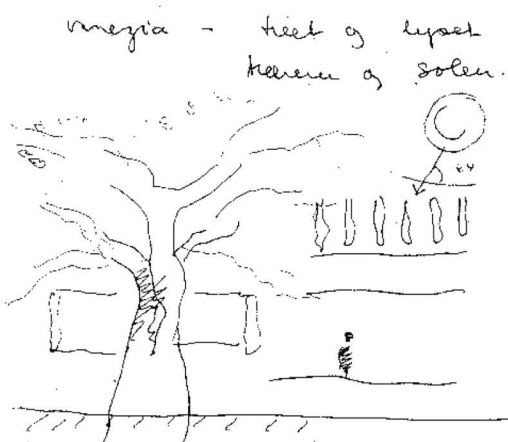 venezia - treet og lyset
trærne og solen.